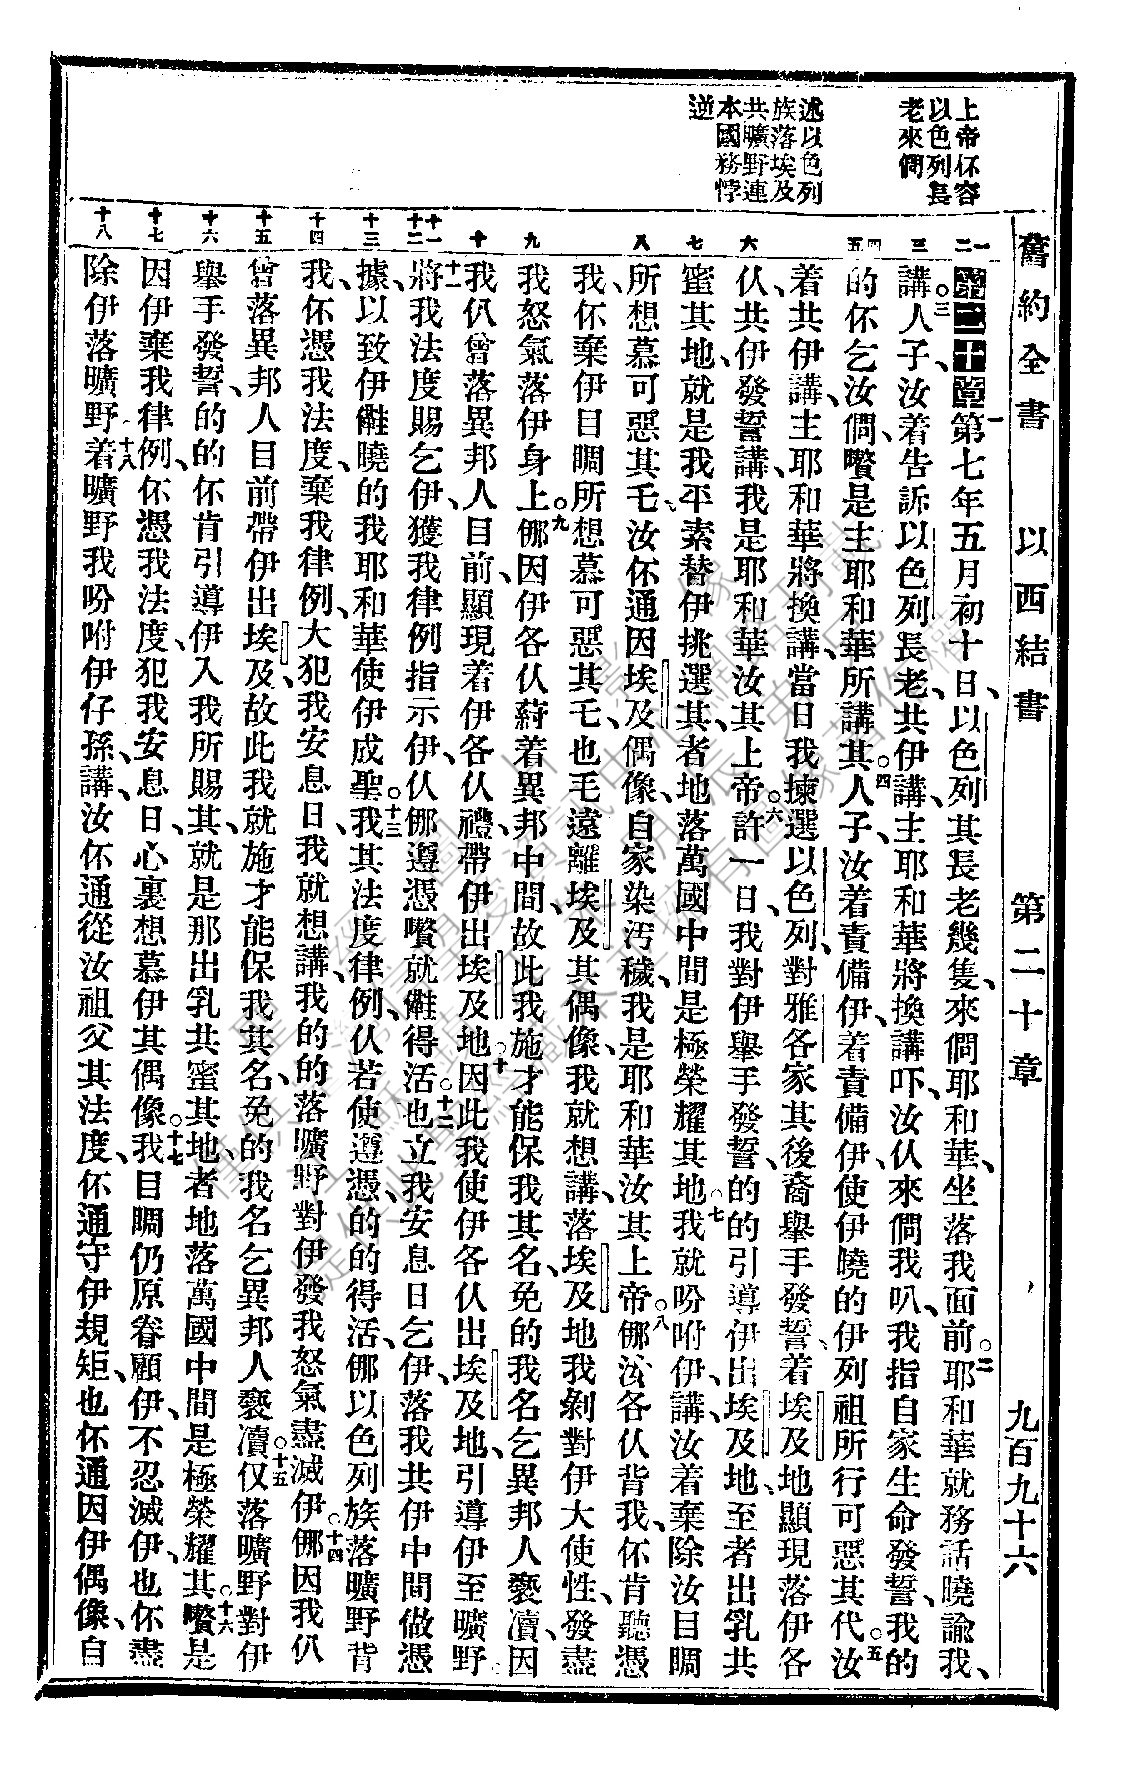 舊約全書 以西結書 第二十章 九百九十六
上帝伓容
以色列長
老來㒲
述以色列
族落埃及
共曠野連
本國務悖
逆
一 二 三 四 五 六 七 八 九 十 十一 十二 十三 十四 十五 十六 十七 十八
第二十章 一第七年五月初十日、以色列其長老幾隻、來㒲耶和華、坐落我面前。二耶和華就務話曉諭我、
講。三人子、汝着告訴以色列長老、共伊講、主耶和華將換講、吓、汝仈來㒲我叭、我指自家生命發誓、我的
的伓乞汝㒲、嚽是主耶和華所講其。四人子、汝着責備伊、着責備伊、使伊曉的伊列祖所行可惡其代。五汝
着共伊講、主耶和華將換講、當日我揀選以色列、對雅各家其後裔舉手發誓、着埃及地顯現落伊各
仈、共伊發誓講、我是耶和華汝其上帝。六許一日、我對伊舉手發誓、的的引導伊出埃及地、至者出乳共
蜜其地、就是我平素替伊挑選其、者地落萬國中間是極榮耀其地。七我就吩咐伊講、汝着棄除汝目睭
所想慕可惡其乇、汝伓通因埃及偶像、自家染汚穢、我是耶和華汝其上帝。八㑚伊各仈背我、伓肯聽憑
我、伓棄伊目睭所想慕可惡其乇、也毛遠離埃及其偶像、我就想講、落埃及地我剝對伊大使性、發盡
我怒氣落伊身上。九㑚因伊各仈蹛着異邦中間、故此我施才能保我其名、免的我名乞異邦人褻凟、因
我仈曾落異邦人目前、顯現着伊各仈、禮帶伊出埃及地。十因此我使伊各仈出埃及地、引導伊至曠野
十一將我法度賜乞伊、獲我律例指示伊、仈㑚遵憑嚽就㒸得活。十二也立我安息日乞伊、落我共伊中間做憑
據、以致伊㒸曉的我耶和華使伊成聖。十三我其法度律例、仈若使遵憑的的得活、㑚以色列族落曠野背
我、伓憑我法度、棄我律例、大犯我安息日、我就想講、我的的落曠野對伊發我怒氣盡滅伊。十四㑚因我仈
曾落異邦人目前帶伊出埃及、故此我就施才能保我其名、免的我名乞異邦人褻凟。十五仅落曠野對伊
舉手發誓、的的伓肯引導伊入我所賜其、就是那出乳共蜜其地、者地落萬國中間是極榮耀其。十六嚽是
因伊棄我律例、伓憑我法度、犯我安息日、心裏想慕伊其偶像。十七我目睭仍原眷顧伊、不忍滅伊、也伓盡
除伊落曠野。十八着曠野我吩咐伊仔孫講、汝伓通從汝祖父其法度、伓通守伊規矩、也伓通因伊偶像、自